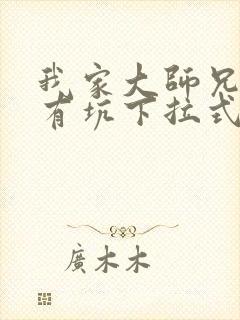 我家大師兄
有坑下拉式
廣木木